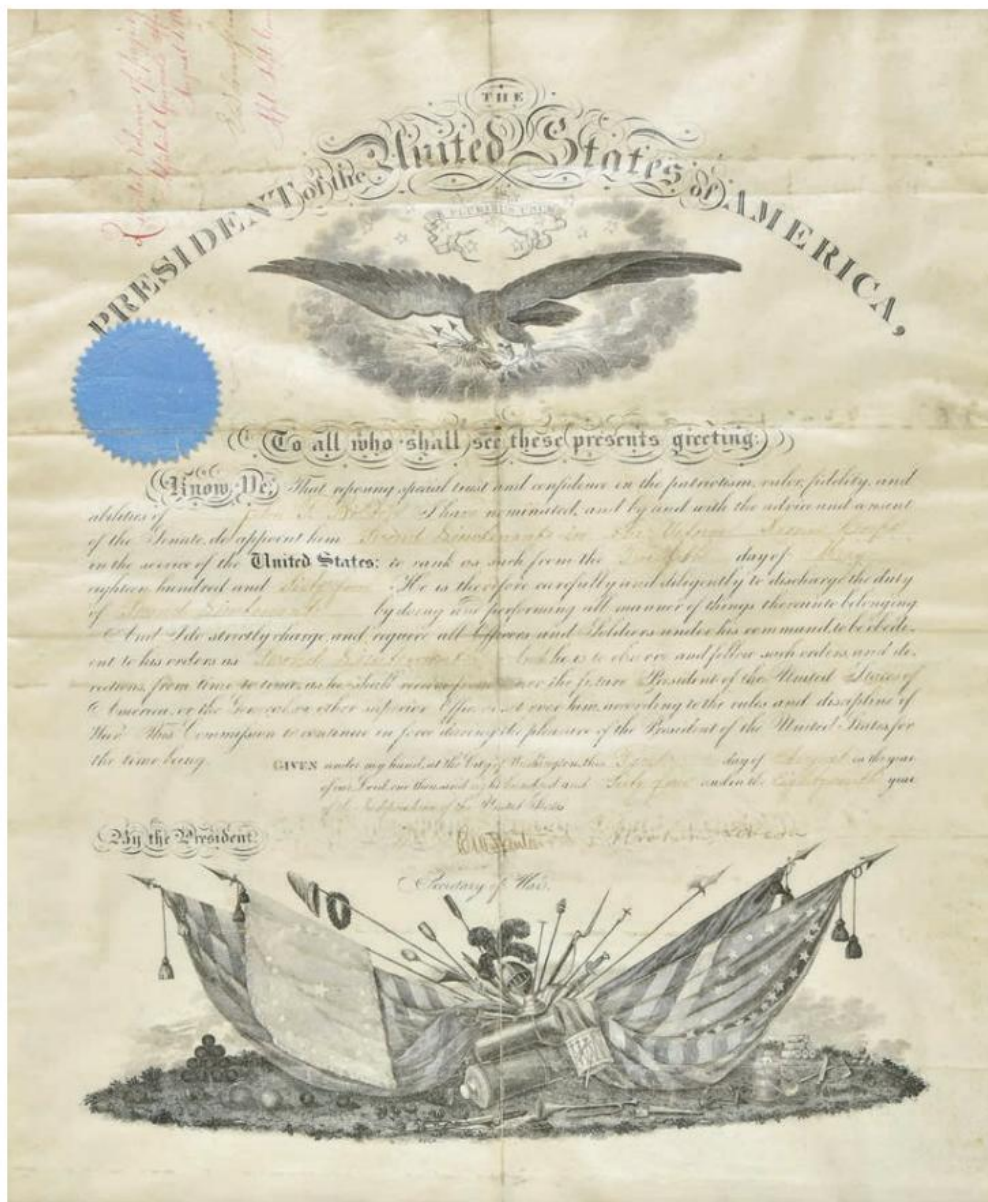 THE
PRESIDENT of the United States of AMERICA,
E PLURIBUS UNUM
To all who shall see these presents greeting:
Know Ye, That reposing special trust and confidence in the patriotism, valor, fidelity, and
abilities of I have nominated, and by and with the advice and consent
of the Senate, do appoint him Second Lieutenant in the Veteran Reserve Corps
in the service of the United States: to rank as such from the day of May
eighteen hundred and Sixty four He is therefore carefully and diligently to discharge the duty
of Second Lieutenant by doing and performing all manner of things thereunto belonging
And I do strictly charge, and require all Officers and Soldiers under his command to be obedi-
ent to his orders as Second Lieutenant And he is to observe and follow such orders, and di-
rections, from time to time, as he shall receive from me or the future President of the United States of
America, or the General or other superior Officers set over him, according to the rules and discipline of
War. This Commission to continue in force during the pleasure of the President of the United States for
the time being.
GIVEN under my hand, at the City of Washington, this day of August in the year
of our Lord one thousand eight hundred and Sixty four and in the Eighty ninth year
of the Independence of the United States
By the President
Secretary of War.